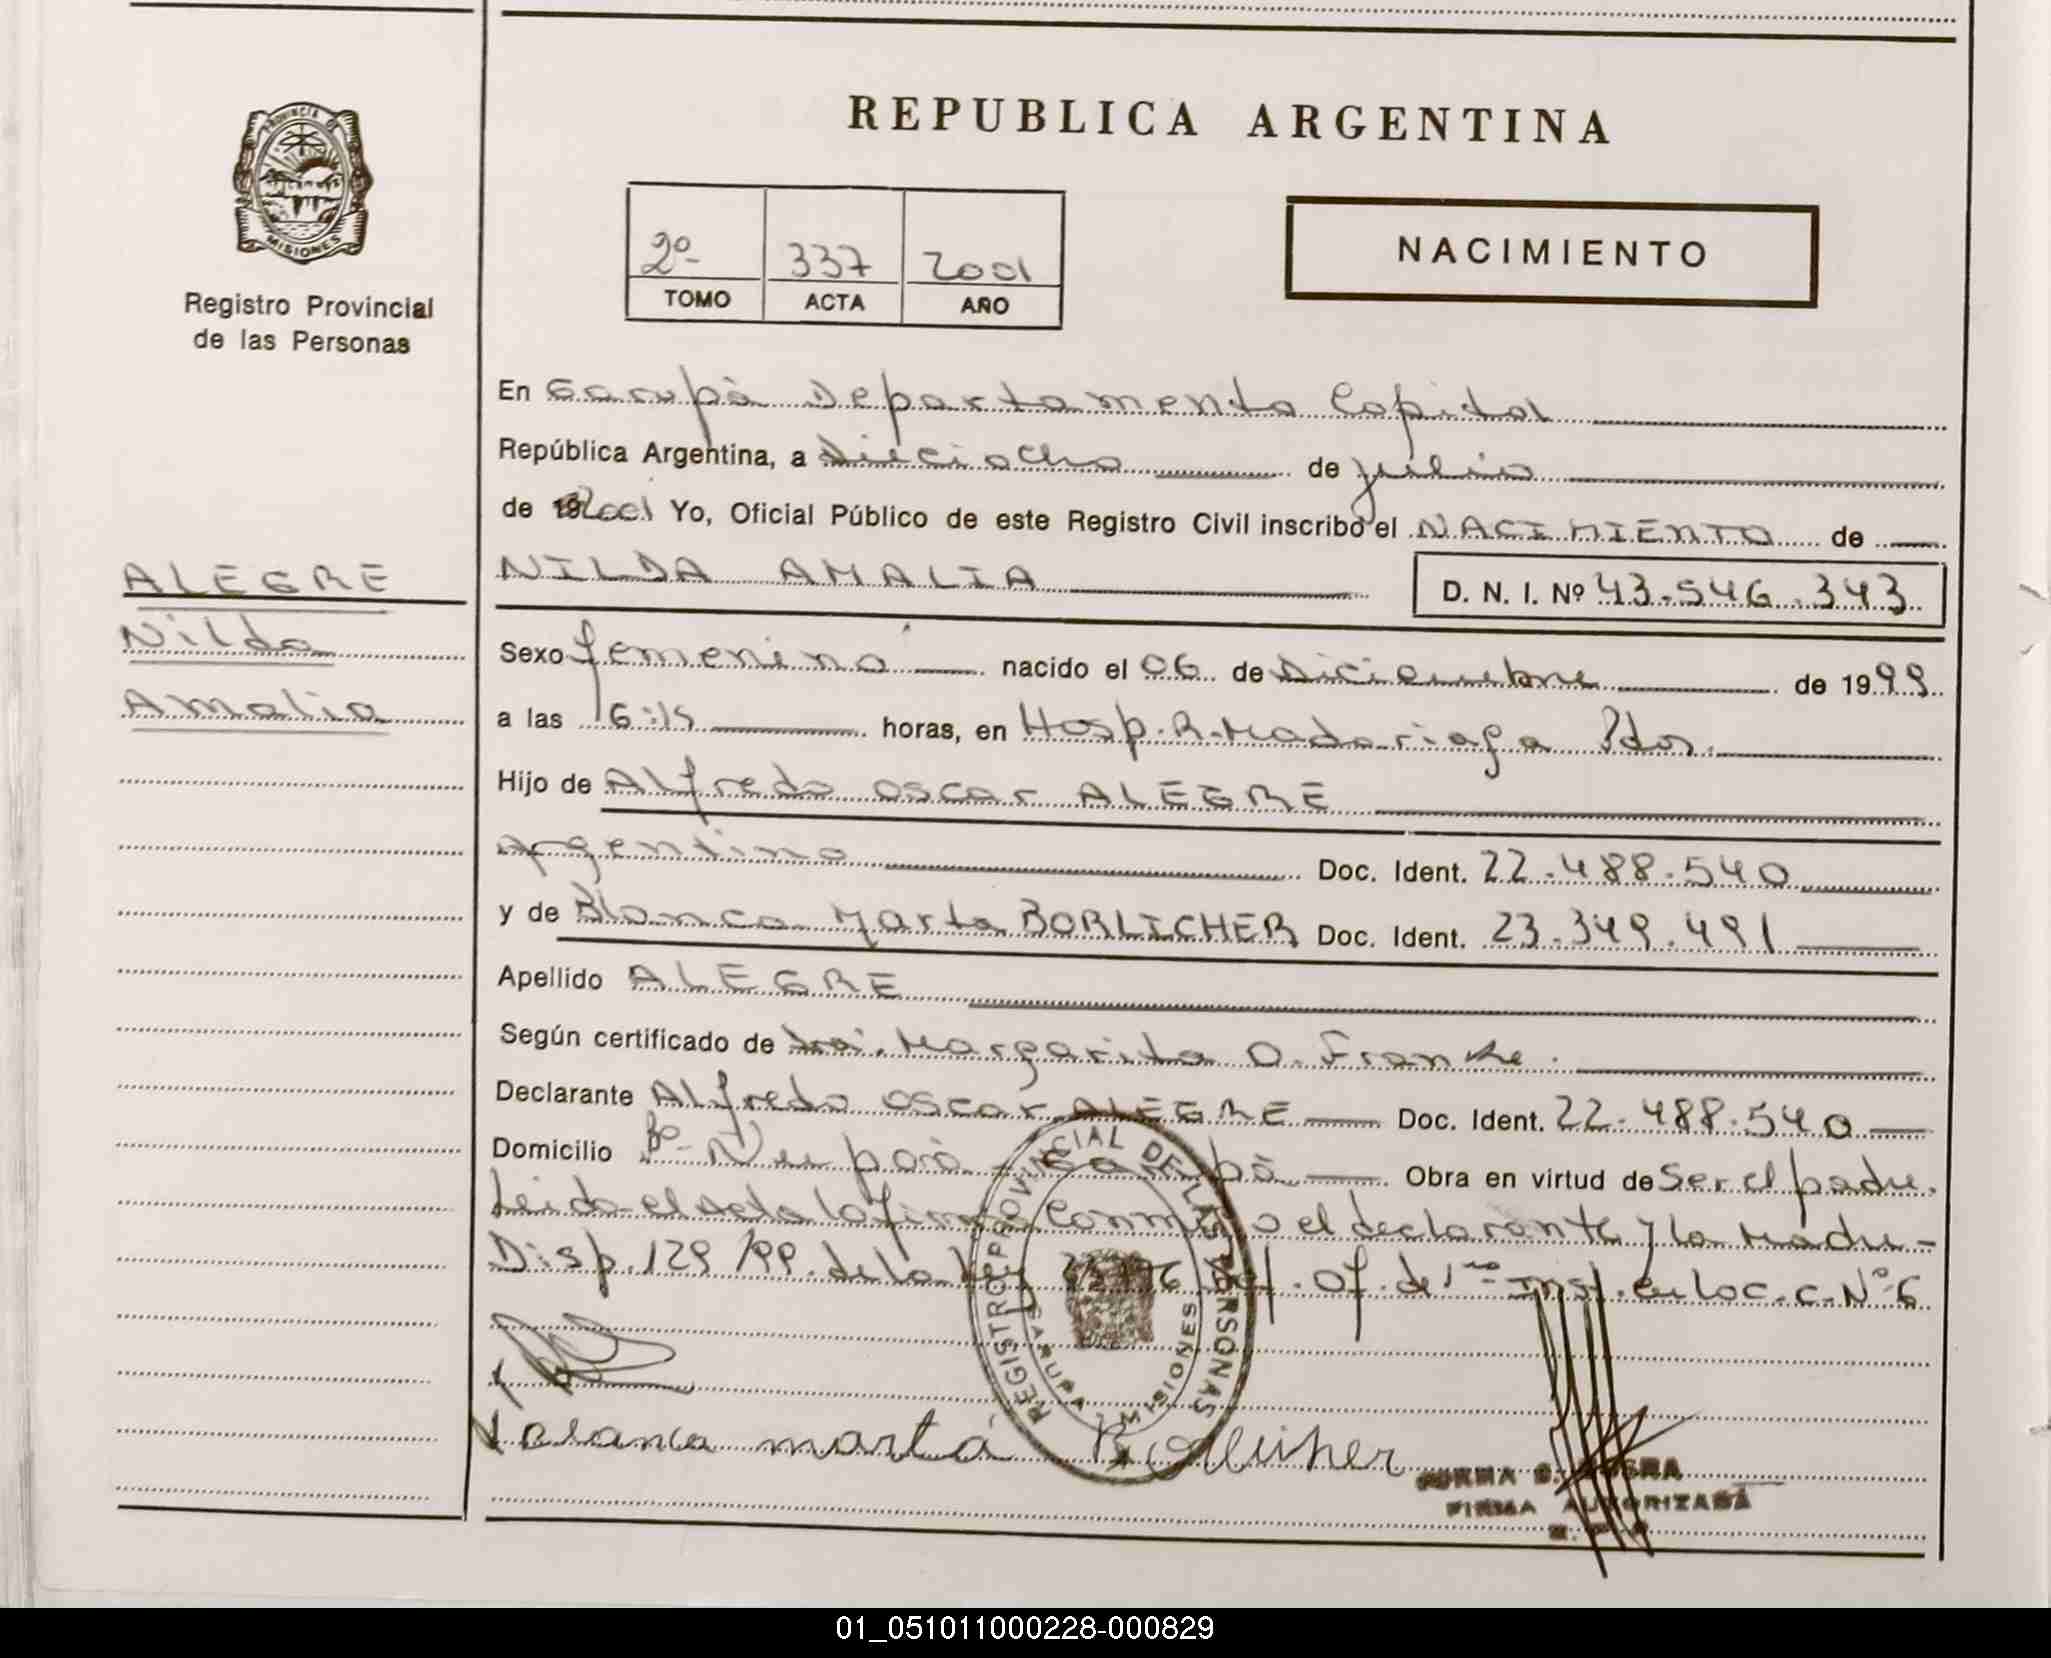 PROVINCIA DE
MISIONES
Registro Provincial
de las Personas
ALEGRE
Nilda
Amalia
REPUBLICA ARGENTINA
2º 337 2001
TOMO ACTA AÑO
NACIMIENTO
En Garupá Departamento Capital
República Argentina, a Dieciocho de julio
de 2001 Yo, Oficial Público de este Registro Civil inscribo el NACIMIENTO de
NILDA AMALIA D. N. I. Nº 43.546.343
Sexo femenino nacido el 06 de Diciembre de 1999
a las 16:15 horas, en Hosp. R. Madariaga Pdas.
Hijo de Alfredo Oscar ALEGRE
Argentino Doc. Ident. 22.488.540
y de Blanca Marta BORLICHER Doc. Ident. 23.349.491
Apellido ALEGRE
Según certificado de Dra. Margarita O. Franke.
Declarante Alfredo Oscar ALEGRE Doc. Ident. 22.488.540
Domicilio Bº Ñu porá Garupá Obra en virtud de Ser el padre.
Leida el acta la firma conmigo el declarante y la Madre -
Disp. 129/99. de la Ley Of. de Inst. en Loc. C. Nº 6
REGISTRO PROVINCIAL DE LAS PERSONAS
GARUPA MISIONES
Blanca marta
FIRMA AUTORIZADA
01_051011000228-000829